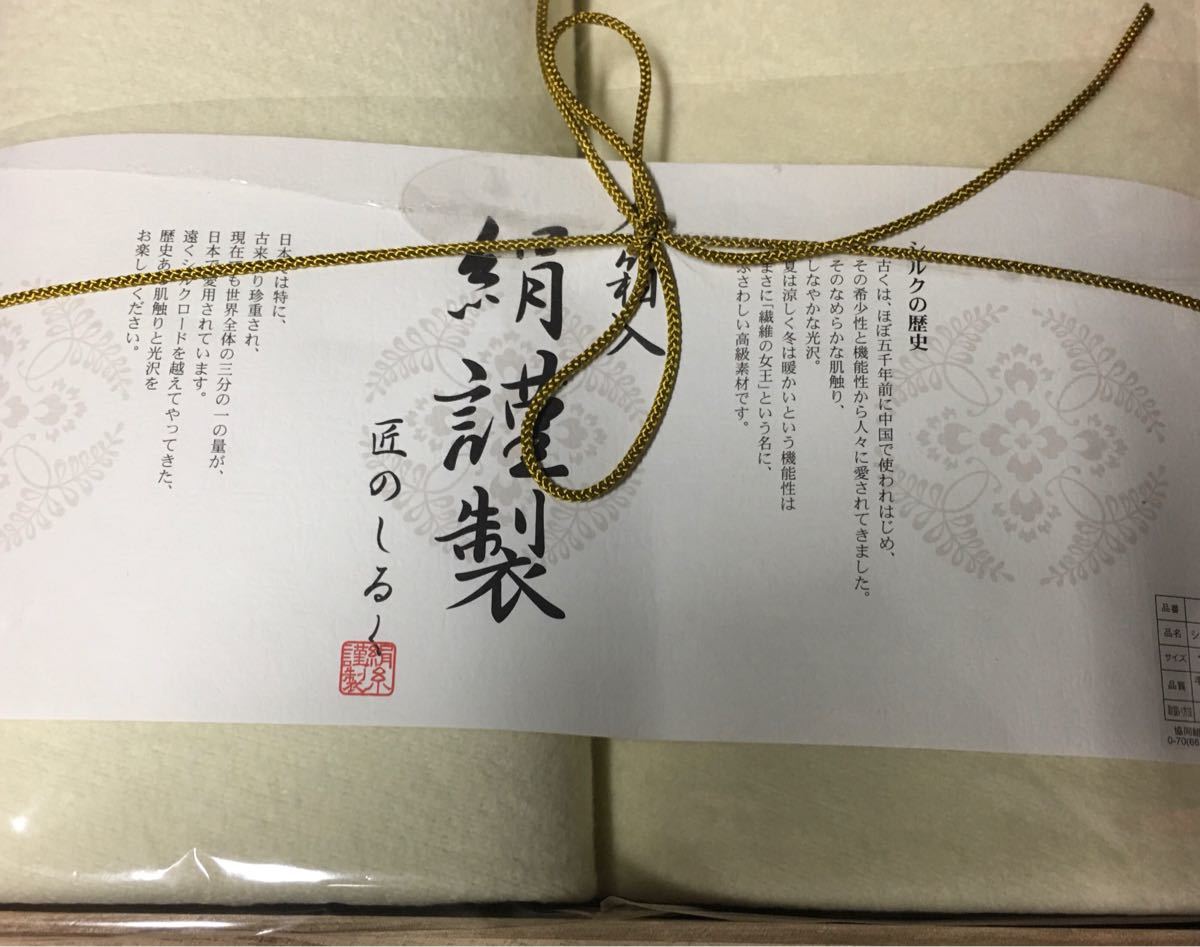 シルクの歴史
古くは、ほぼ五千年前に中国で使われはじめ、
その希少性と機能性から人々に愛されてきました。
そのなめらかな肌触り、
しなやかな光沢。
夏は涼しく冬は暖かいという機能性は
まさに「繊維の女王」という名に、
ふさわしい高級素材です。
箱入
絹謹製
匠のしるく
絹糸
謹製
日本 は特に、
古来 り珍重され、
現在 も世界全体の三分の一の量が、
日本 愛用されています。
遠くシルクロードを越えてやってきた、
歴史ある 肌触りと光沢を
お楽し ください。
品番
品名 シ
サイズ
品質 毛
取扱い方法
協同
0-70(66